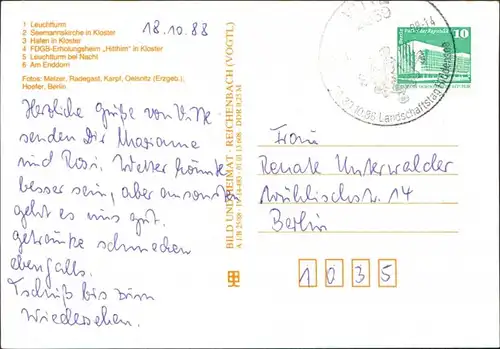 1 Leuchtturm
2 Seemannskirche in Kloster
3 Hafen in Kloster
4 FDGB-Erholungsheim „Hitthim“ in Kloster
5 Leuchtturm bei Nacht
6 Am Enddorn
Fotos: Melzer, Radegast, Karpf, Oelsnitz (Erzgeb.);
Hoefer, Berlin
18.10.88
Herzliche Grüße von
senden Dir Marianne
und Rosi. Wetter könnte
besser sein, aber ansonsten
geht es uns gut.
getränke schmecken
ebenfalls.
Tschüß bis zum
Wiedersehen.
BILD UND HEIMAT · REICHENBACH (VOGTL)
DDR 0,25 M
Palast der Republik
10
DDR
Landschaftstag
Frau
Renate Unterwalder
Wühlischstr. 14
Berlin
1035